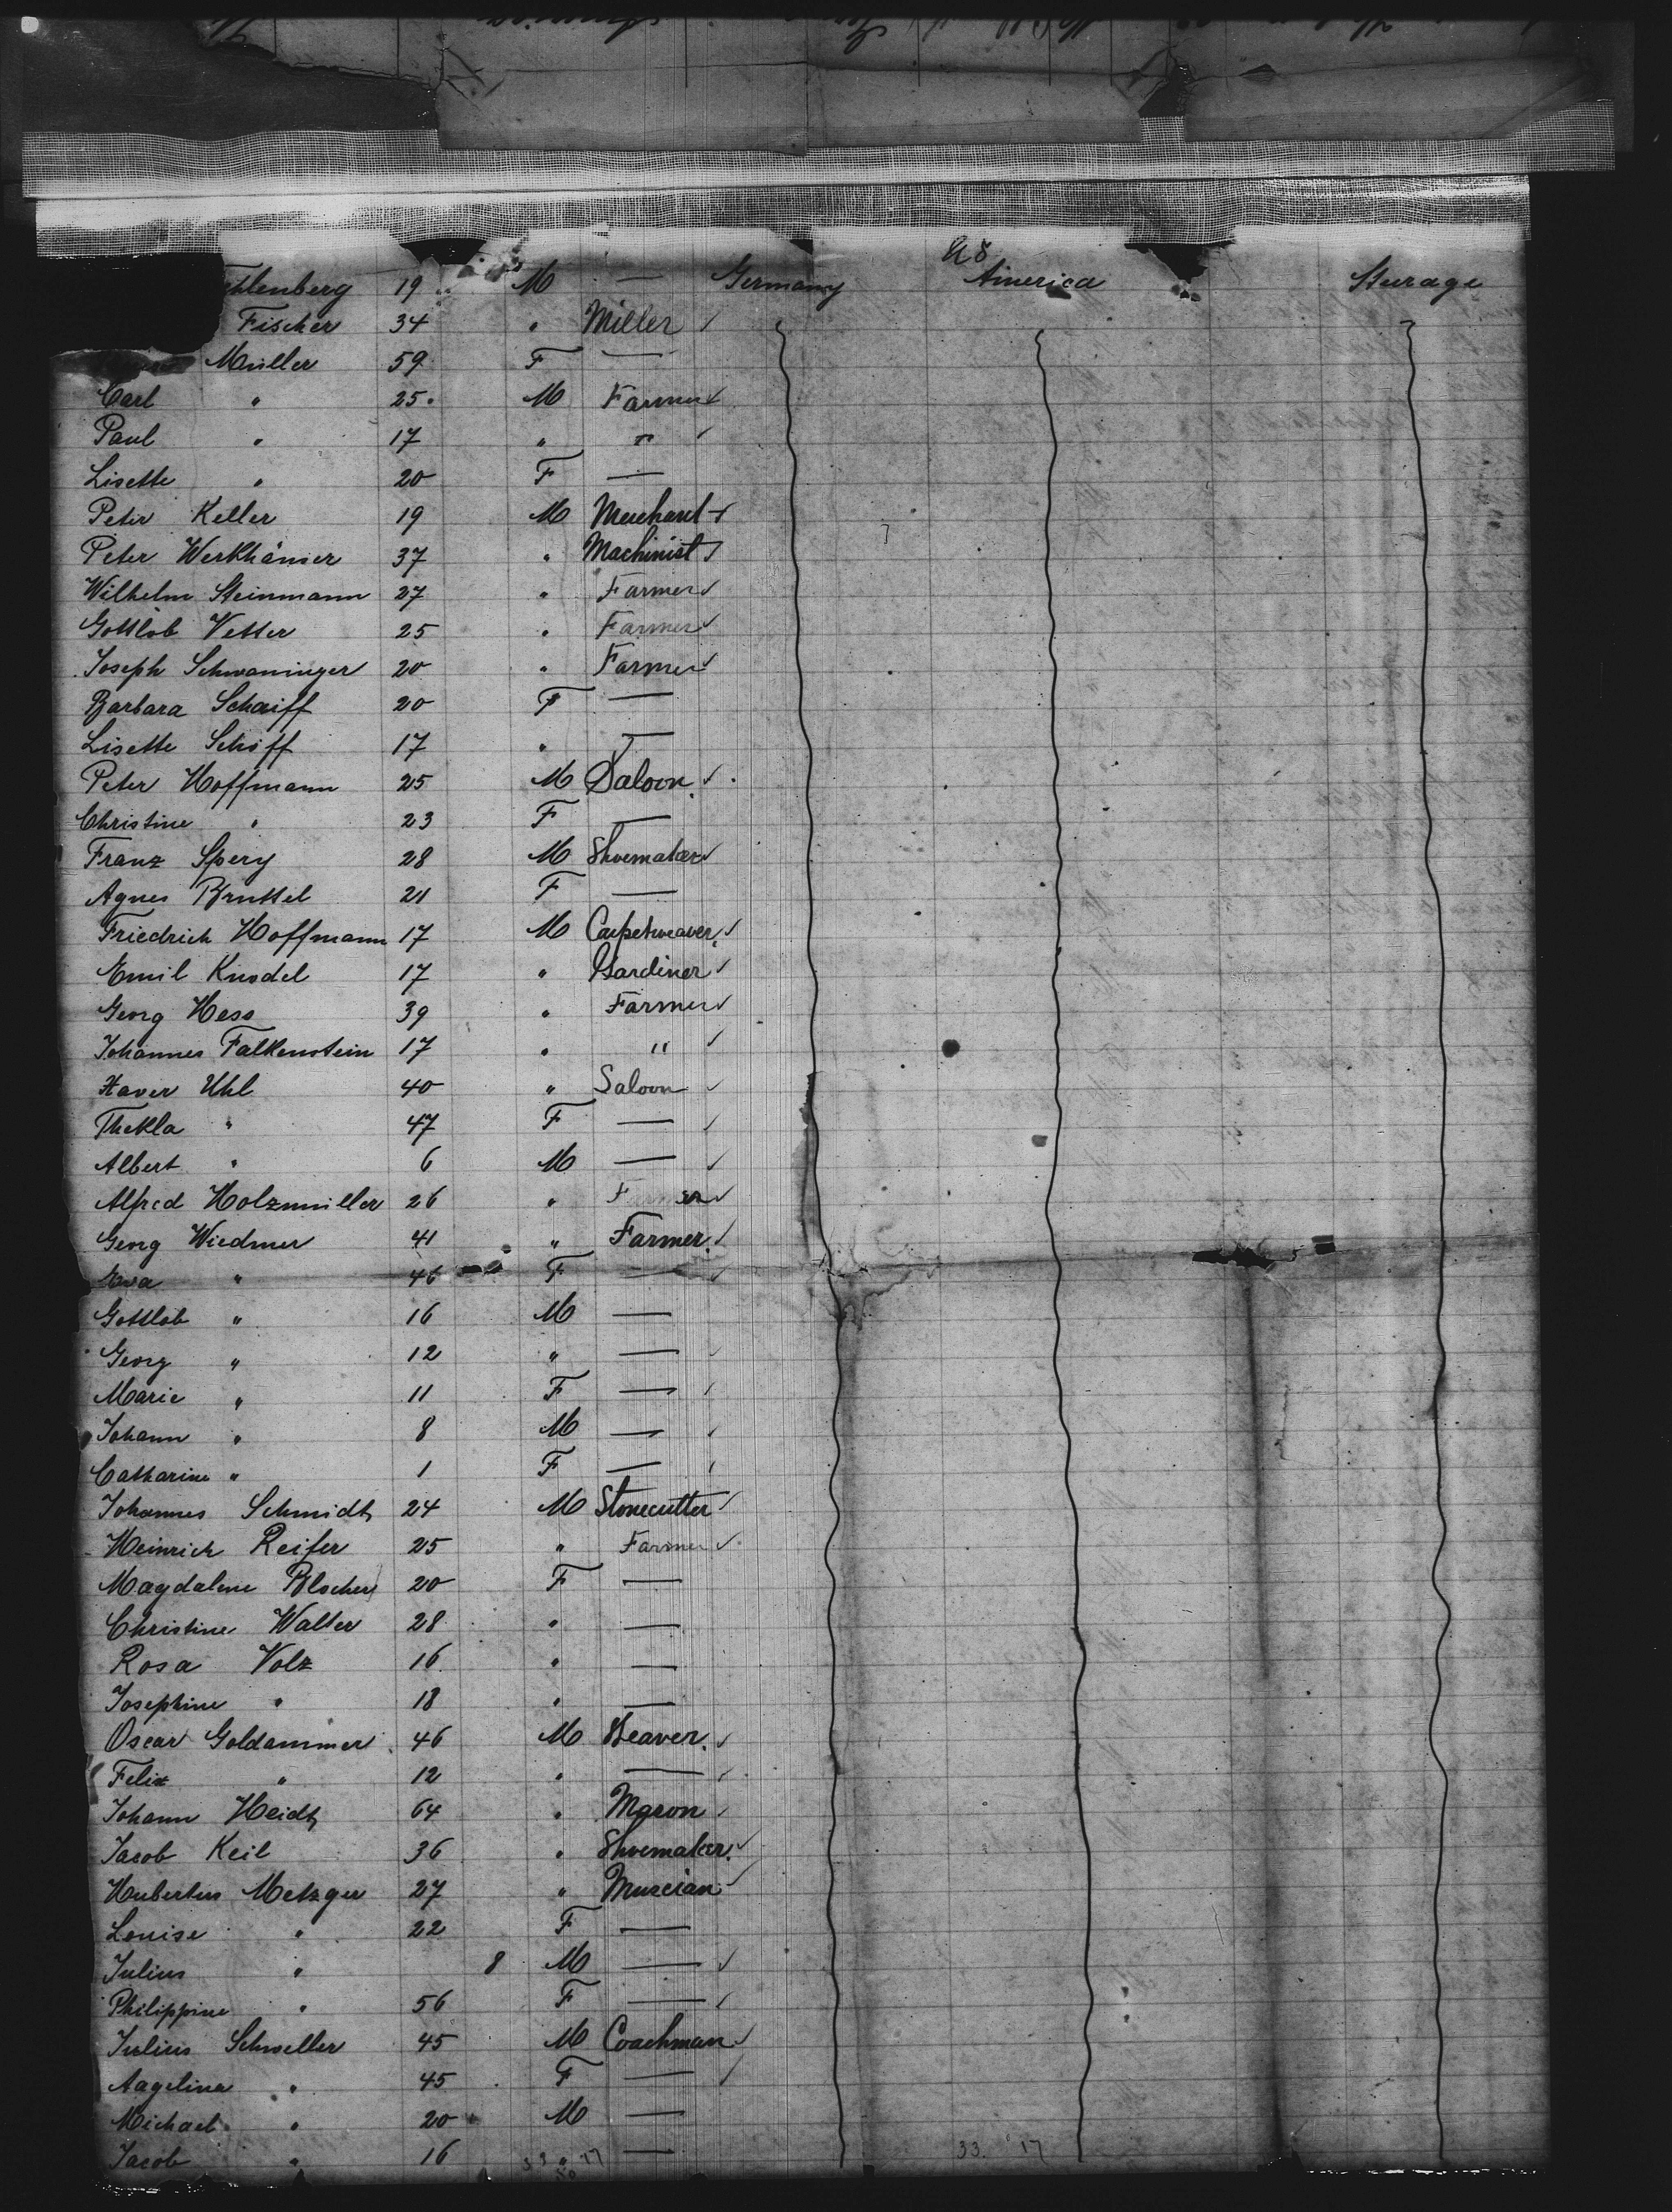 U S
hlenberg 19 M — Germany America Steerage
Fischer 34 " Miller ✓
Müller 59 F —
Carl " 25. M Farmer ✓
Paul " 17 " " ✓
Lisette " 20 F —
Peter Keller 19 M Merchant ✓
Peter Werkhäuser 37 " Machinist ✓
Wilhelm Steinmann 27 " Farmer ✓
Gottlob Vetter 25 " Farmer ✓
Joseph Schwaninger 20 " Farmer ✓
Barbara Schaiff 20 F —
Lisette Schöff 17 " —
Peter Hoffmann 25 M Saloon ✓
Christine " 23 F —
Franz Spery 28 M Shoemaker ✓
Agnes 21 F —
Friedrich Hoffmann 17 M Carpetweaver ✓
Emil Knodel 17 " Gardiner ✓
Georg Hess 39 " Farmer ✓
Johannes Falkenstein 17 " " ✓
Xaver Uhl 40 " Saloon ✓
Thekla " 47 F — ✓
Albert " 6 M — ✓
Alfred Holzmüller 26 " Farmer ✓
Georg Wiedmer 41 " Farmer. ✓
Eva " 46 F — ✓
Gottlob " 16 M —
Georg " 12 " — ✓
Marie " 11 F — ✓
Johann " 8 M — ✓
Catharine " 1 F — ✓
Johannes Schmidt 24 M Stonecutter ✓
Heinrich Reifer 25 " Farmer ✓
Magdalene Blocher 20 F —
Christine Walter 28 " —
Rosa Volz 16 " —
Josephine " 18 " —
Oscar Goldammer 46 M Weaver. ✓
Felix " 12 " — ✓
Johann Heidt 64 " Mason ✓
Jacob Keil 36 " Shoemaker. ✓
Hubertus Metzger 27 " Muscian ✓
Louise " 22 F —
Julius " 8 M — ✓
Philippine " 56 F — ✓
Julius Schoeller 45 M Coachman ✓
Aagelina " 45 F — ✓
Michael " 20 M —
Jacob " 16 " —
33. 17